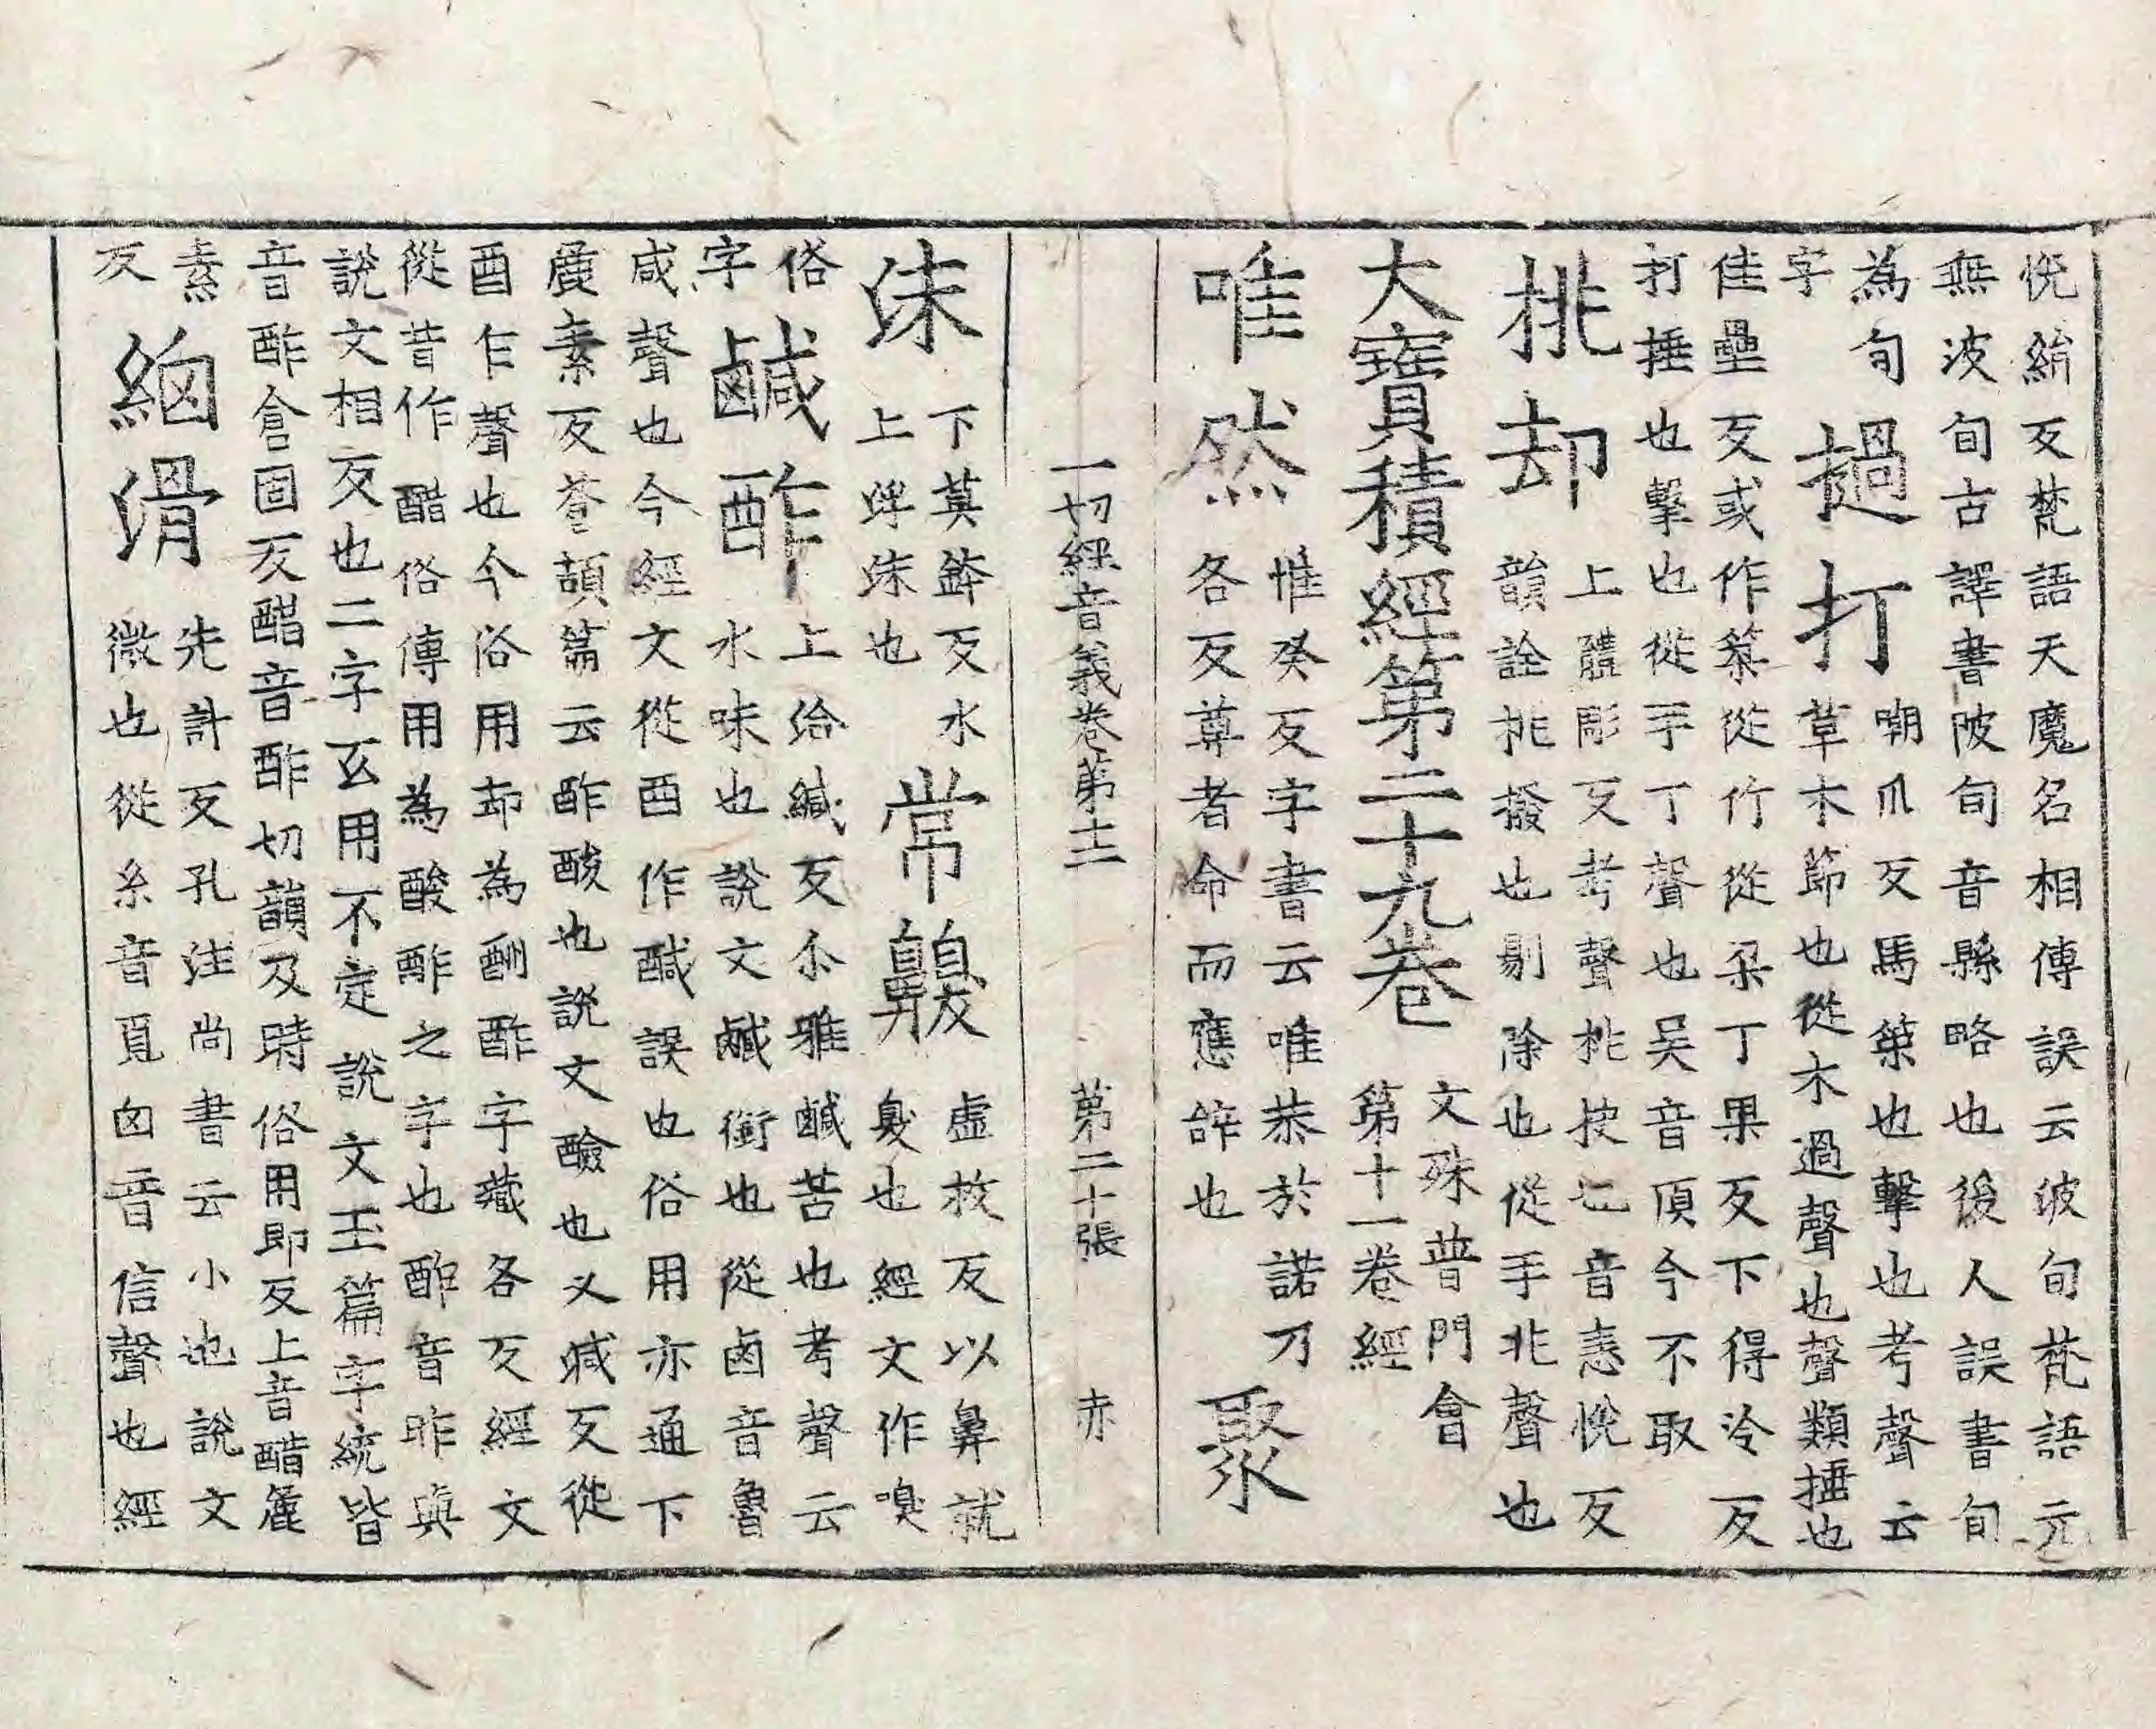 恱絹反梵語天魔名相傳誤云波旬梵語元
無波旬古譯書陂旬音縣略也後人誤書旬
為旬
字
檛打
嘲爪反馬築也擊也考聲云
草木節也從木過聲也聲類捶也
佳壘反或作築從竹從朶丁果反下得冷反
打捶也擊也從手丁聲也吴音頂今不取
挑却
上體彫反考聲挑抉也音恚恱反
韻詮挑撥也剔除也從手兆聲也
大寶積經第二十九卷
文殊普門會
第十一卷經
唯然
惟癸反字書云唯恭於諾乃
各反尊者命而應辞也
聚
一切經音義卷第十二 第二十張 赤
沫
下莫鉢反水
上浮沫也
常齅
虛救反以鼻就
臭也經文作嗅
俗
字
鹹酢
上洽緘反尒雅鹹苦也考聲云
水味也說文鹹銜也從鹵音魯
咸聲也今經文從酉作醎誤也俗用亦通下
麁素反蒼頡篇云酢酸也說文醶也乂減反從
酉乍聲也今俗用却為酬酢字藏各反經文
從昔作醋俗傳用為酸酢之字也酢音昨與
說文相反也二字互用不定說文玉篇字統皆
音酢倉固反醋音酢切韻及時俗用即反上音醋麁
素
反
細滑
先計反孔注尚書云小也說文
微也從糸音覓囟音信聲也經